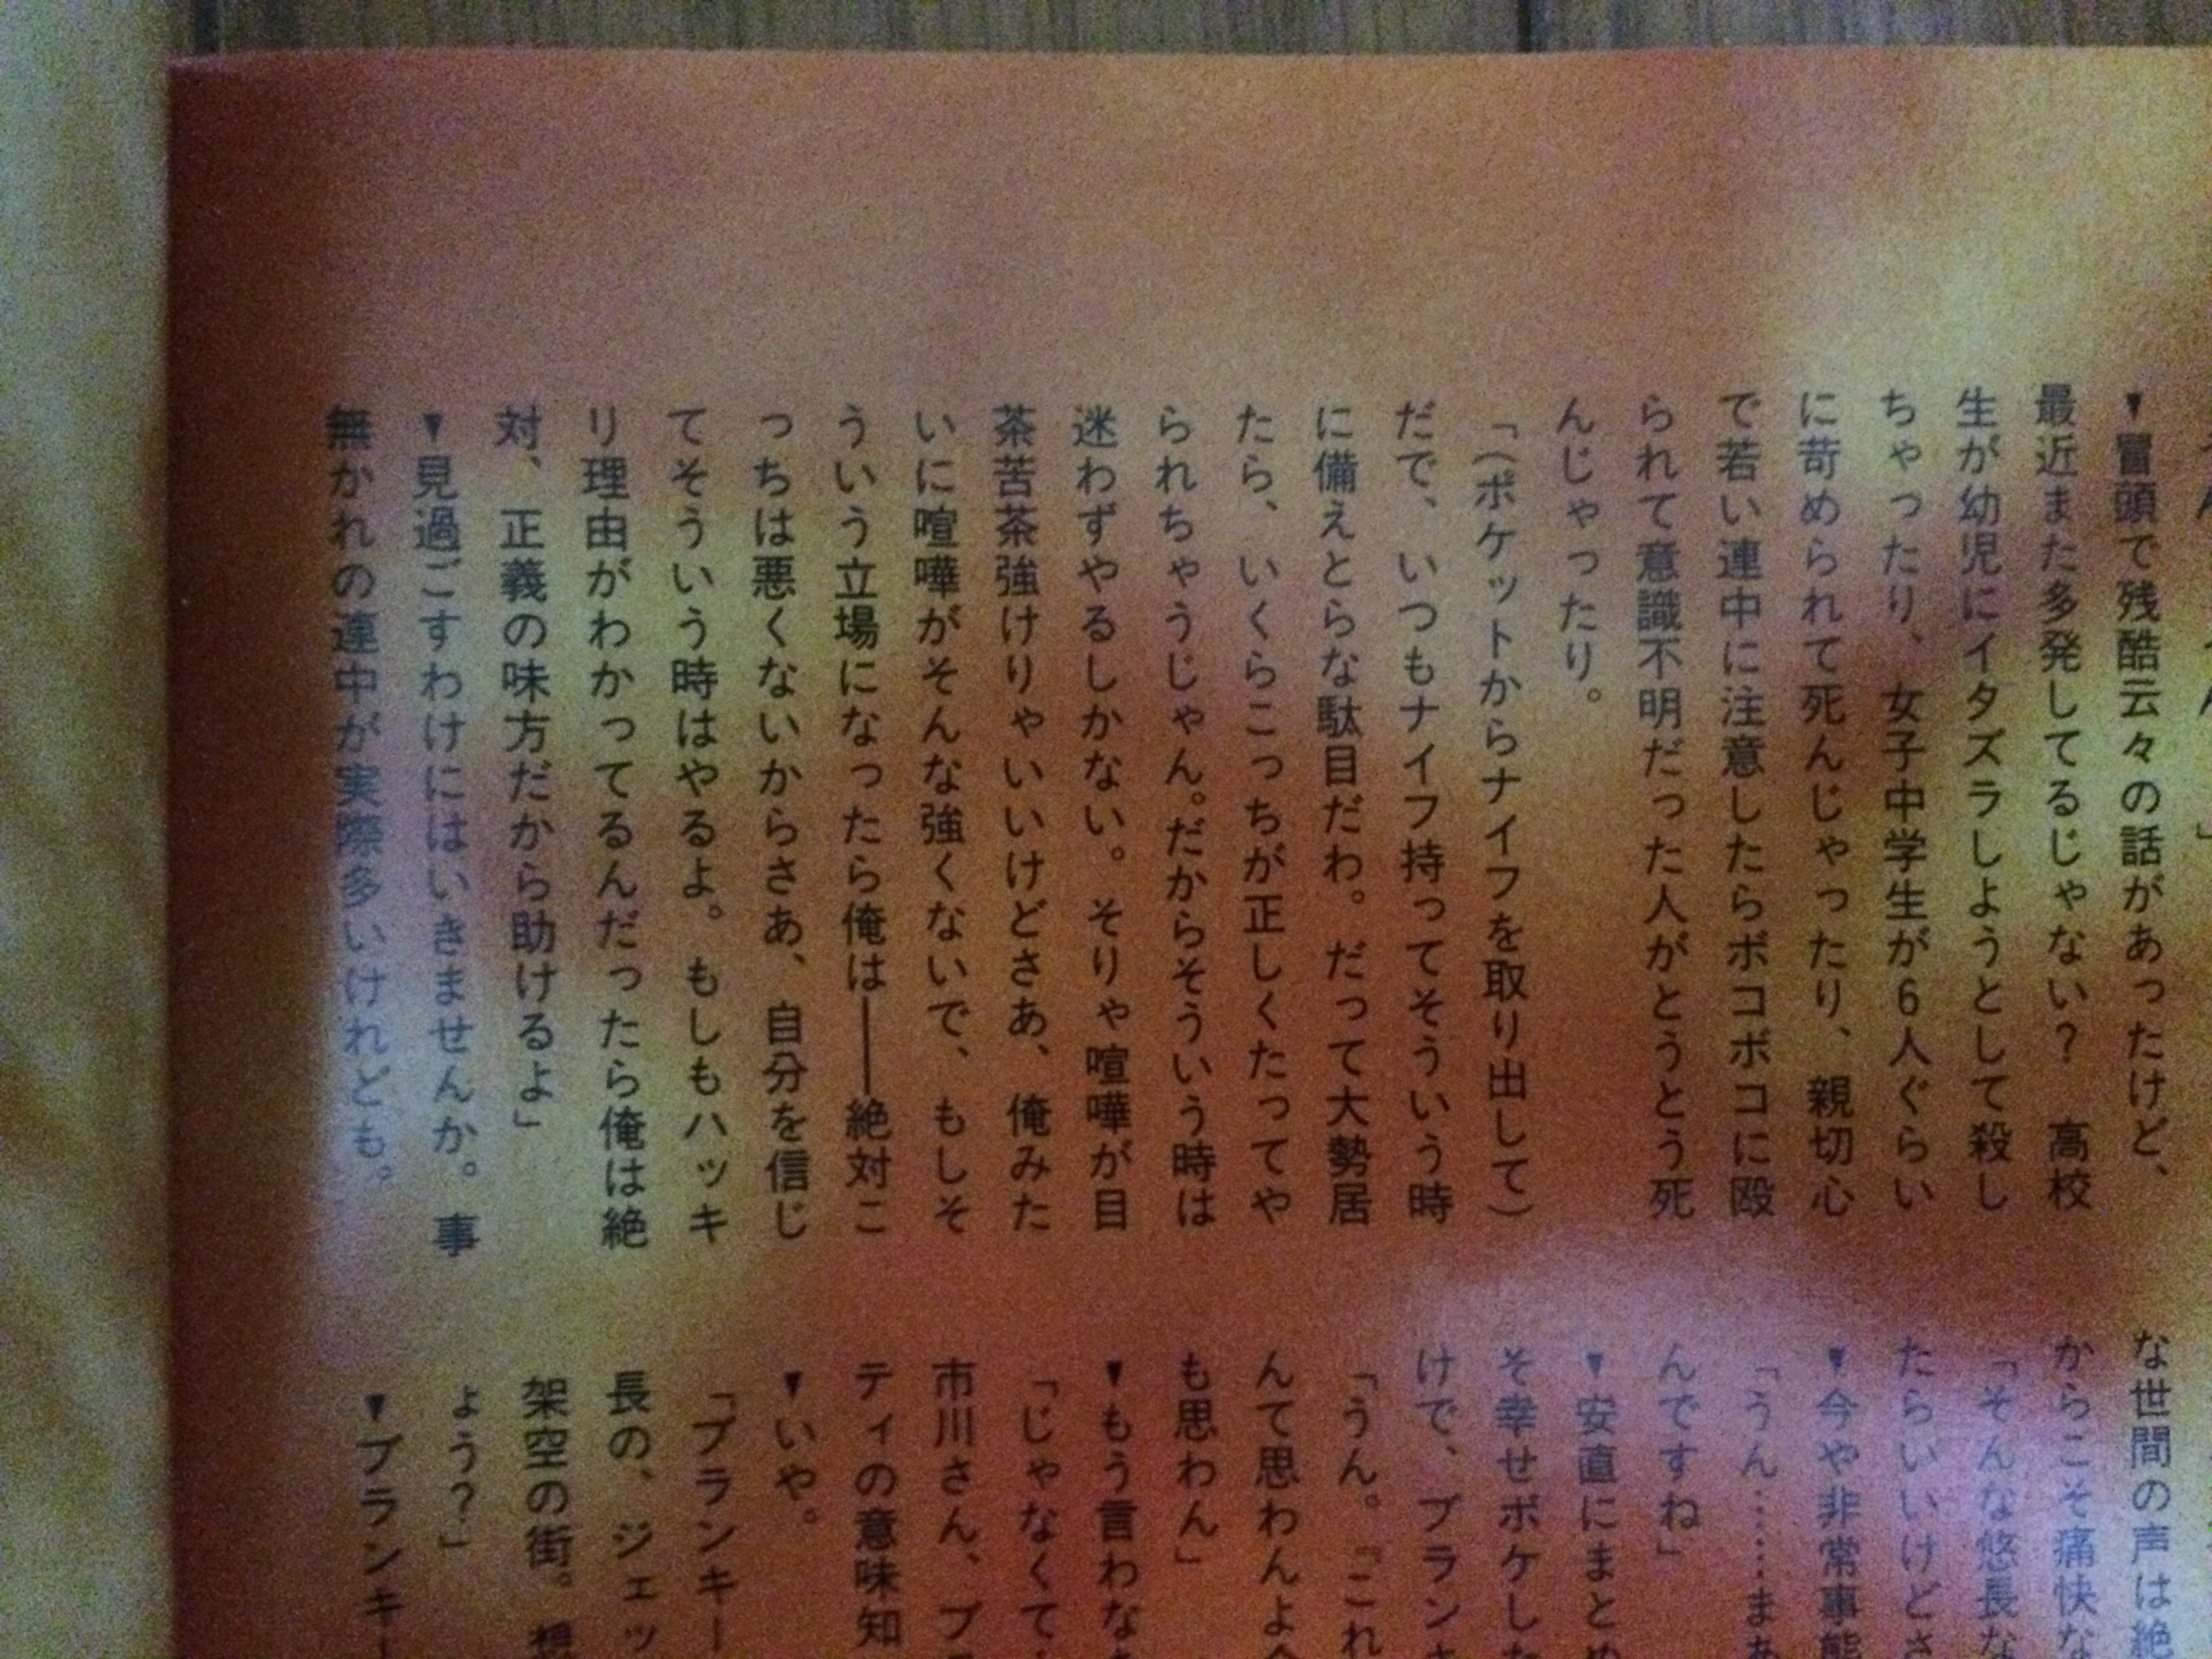 ▼冒頭で残酷云々の話があったけど、
最近また多発してるじゃない？　高校
生が幼児にイタズラしようとして殺し
ちゃったり、女子中学生が6人ぐらい
に苛められて死んじゃったり、親切心
で若い連中に注意したらボコボコに殴
られて意識不明だった人がとうとう死
んじゃったり。
「（ポケットからナイフを取り出して）
だで、いつもナイフ持ってそういう時
に備えとらな駄目だわ。だって大勢居
たら、いくらこっちが正しくたってや
られちゃうじゃん。だからそういう時は
迷わずやるしかない。そりゃ喧嘩が目
茶苦茶強けりゃいいけどさあ、俺みた
いに喧嘩がそんな強くないで、もしそ
ういう立場になったら俺は――絶対こ
っちは悪くないからさあ、自分を信じ
てそういう時はやるよ。もしもハッキ
リ理由がわかってるんだったら俺は絶
対、正義の味方だから助けるよ」
▼見過ごすわけにはいきませんか。事
無かれの連中が実際多いけれども。
な世間の声は絶
からこそ痛快な
「そんな悠長な
たらいいけどさ
▼今や非常事態
「うん……まあ
んですね」
▼安直にまとめ
そ幸せボケした
けで、ブランキ
「うん。『これ
んて思わんよ
も思わん」
▼もう言わな
「じゃなくて
市川さん、ブ
ティの意味知
▼いや。
「ブランキー
長の、ジェッ
架空の街。想
ょう？」
▼ブランキー